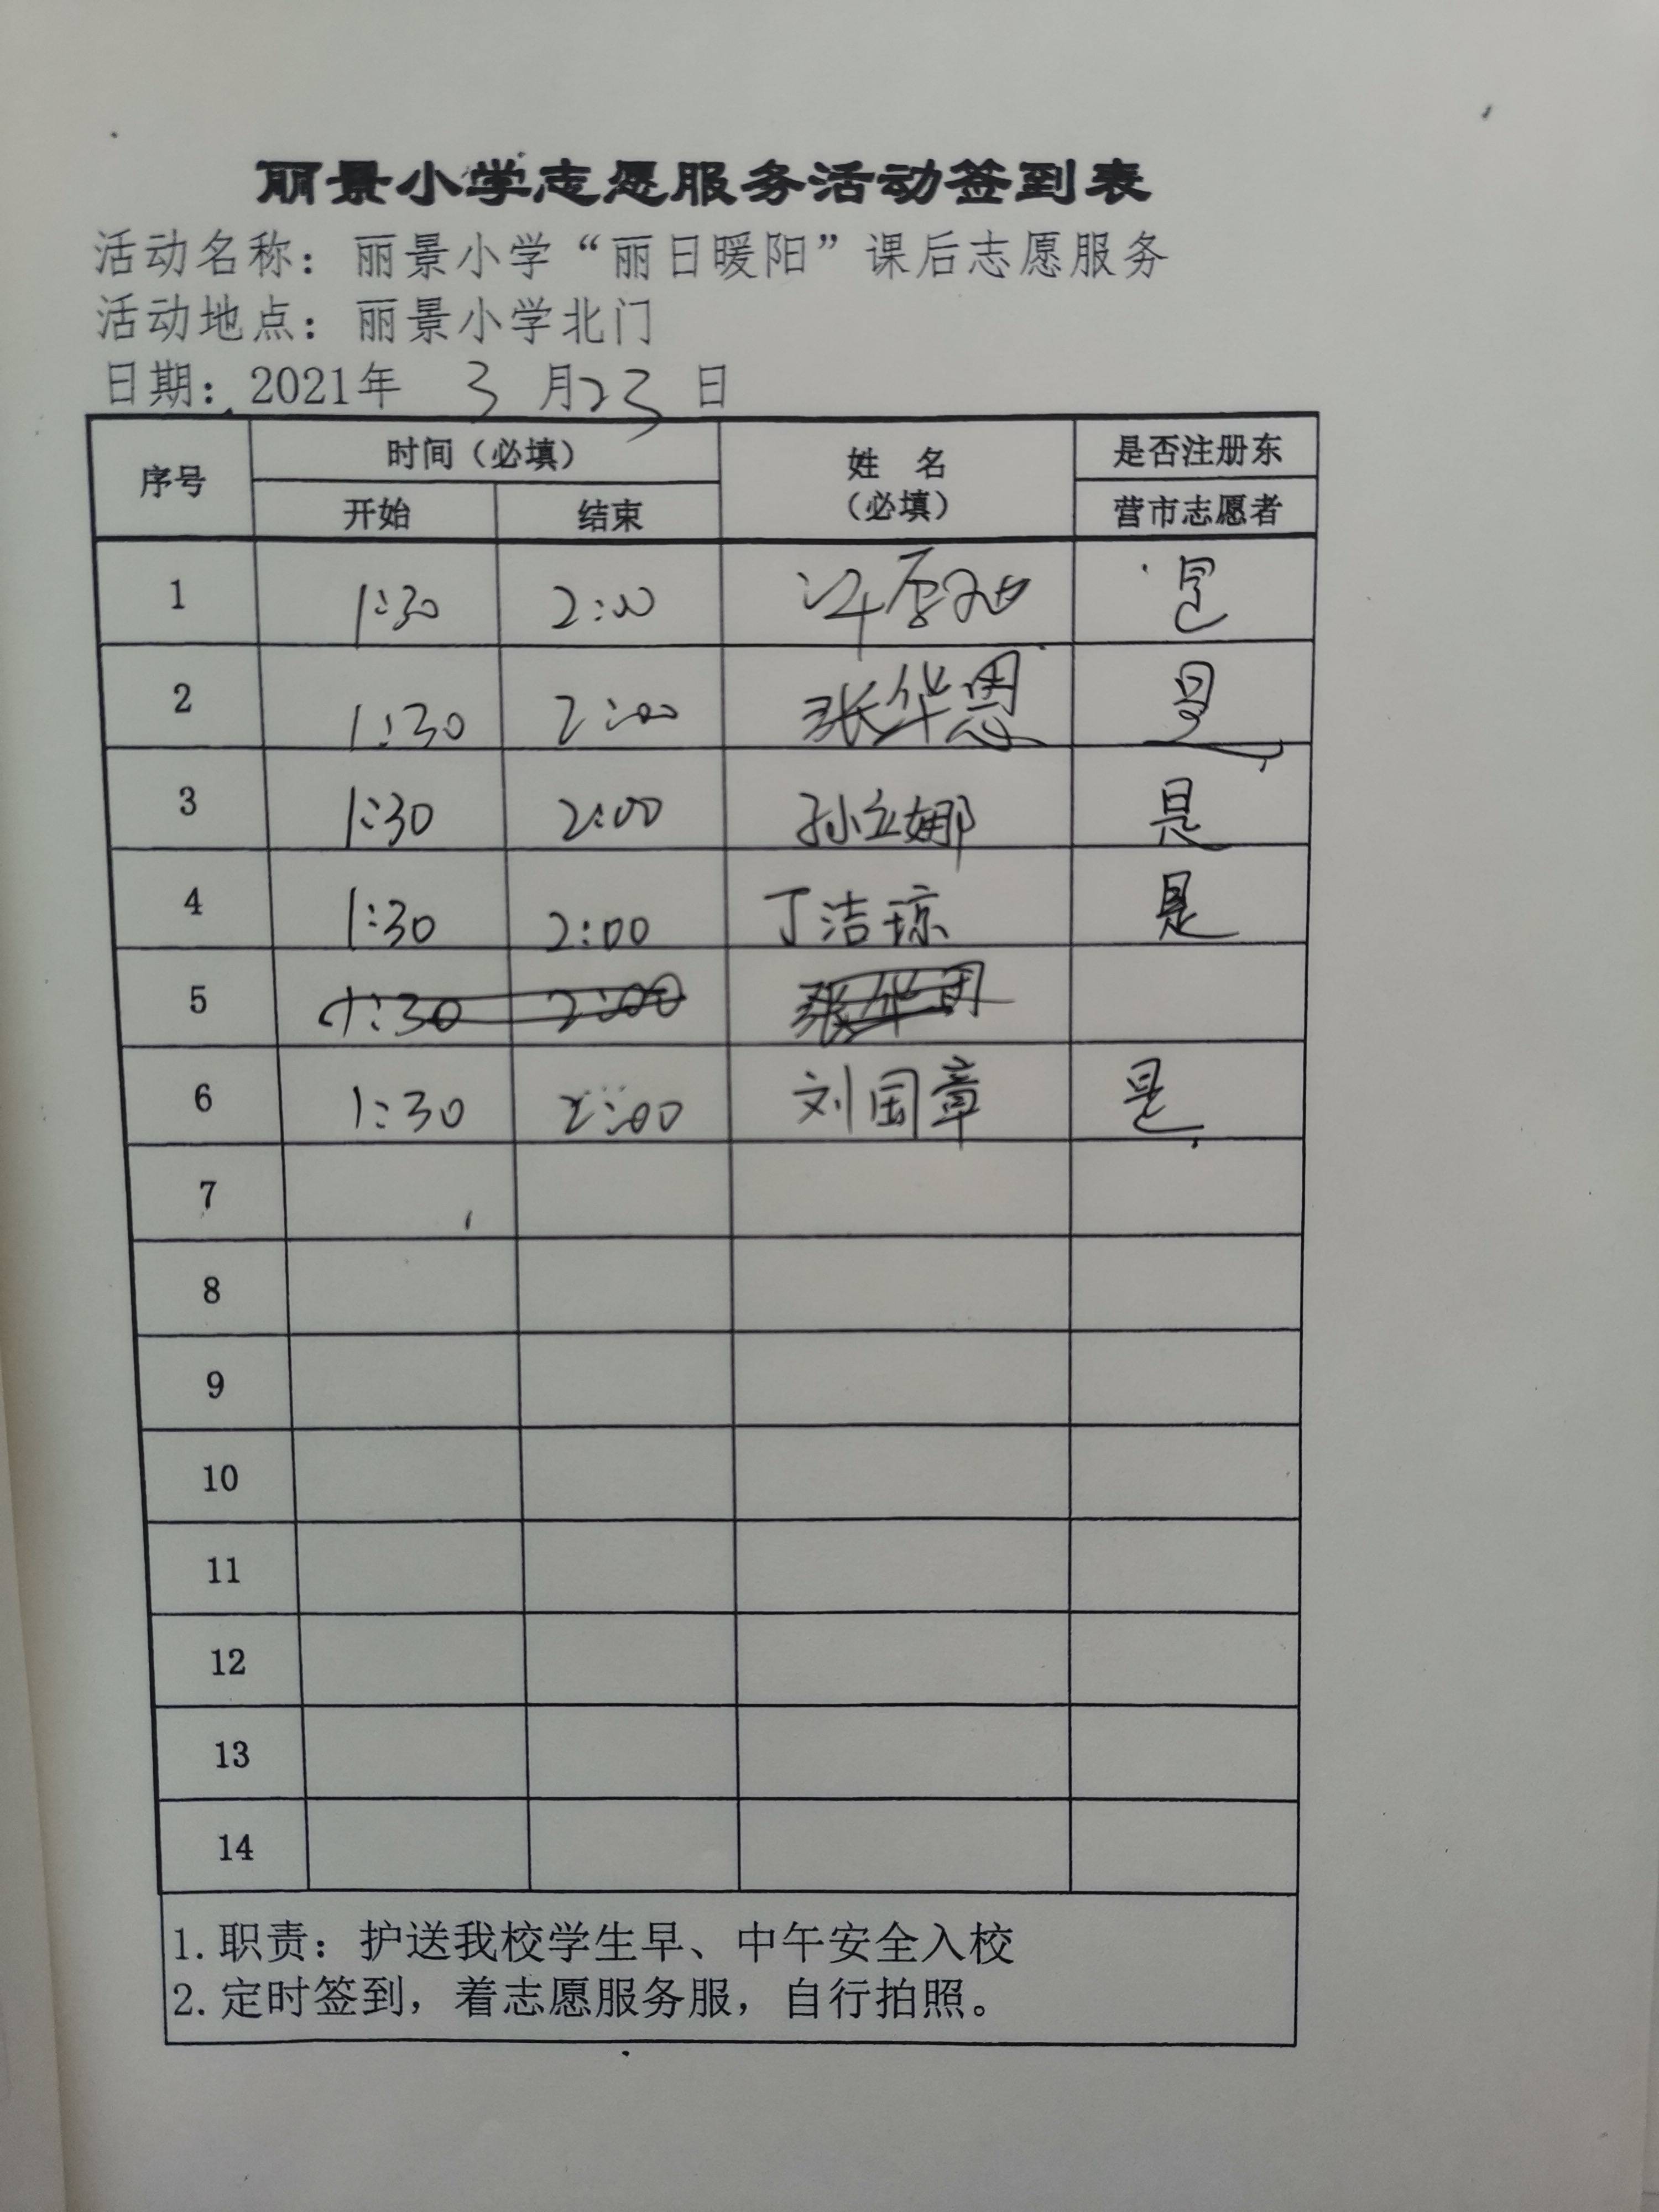 丽景小学志愿服务活动签到表
活动名称：丽景小学“丽日暖阳”课后志愿服务
活动地点：丽景小学北门
日期：2021年 3 月23 日
序号 时间（必填） 姓 名 是否注册东
开始 结束 （必填） 营市志愿者
1 1:30 2:00 是
2 1:30 2:00 张华恩 是
3 1:30 2:00 孙立娜 是
4 1:30 2:00 丁洁琼 是
5 1:30 2:00 张华
6 1:30 2:00 刘国章 是
7
8
9
10
11
12
13
14
1.职责：护送我校学生早、中午安全入校
2.定时签到，着志愿服务服，自行拍照。